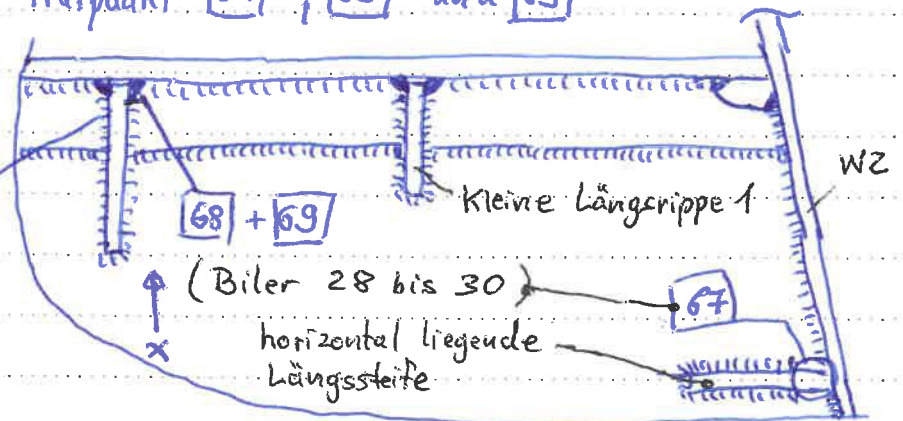 68 und 69
W2
Kleine Längsrippe 1
68 + 69
(Biler 28 bis 30)
67
x
horizontal liegende
Längssteife